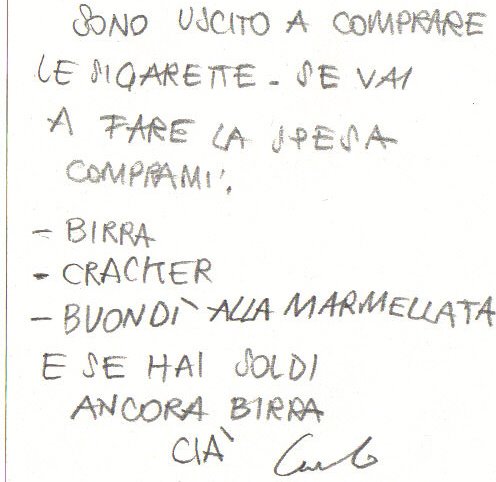 SONO USCITO A COMPRARE
LE SIGARETTE - SE VAI
A FARE LA SPESA
COMPRAMI:
- BIRRA
- CRACKER
- BUONDÌ ALLA MARMELLATA
E SE HAI SOLDI
ANCORA BIRRA
CIÀ Carlo